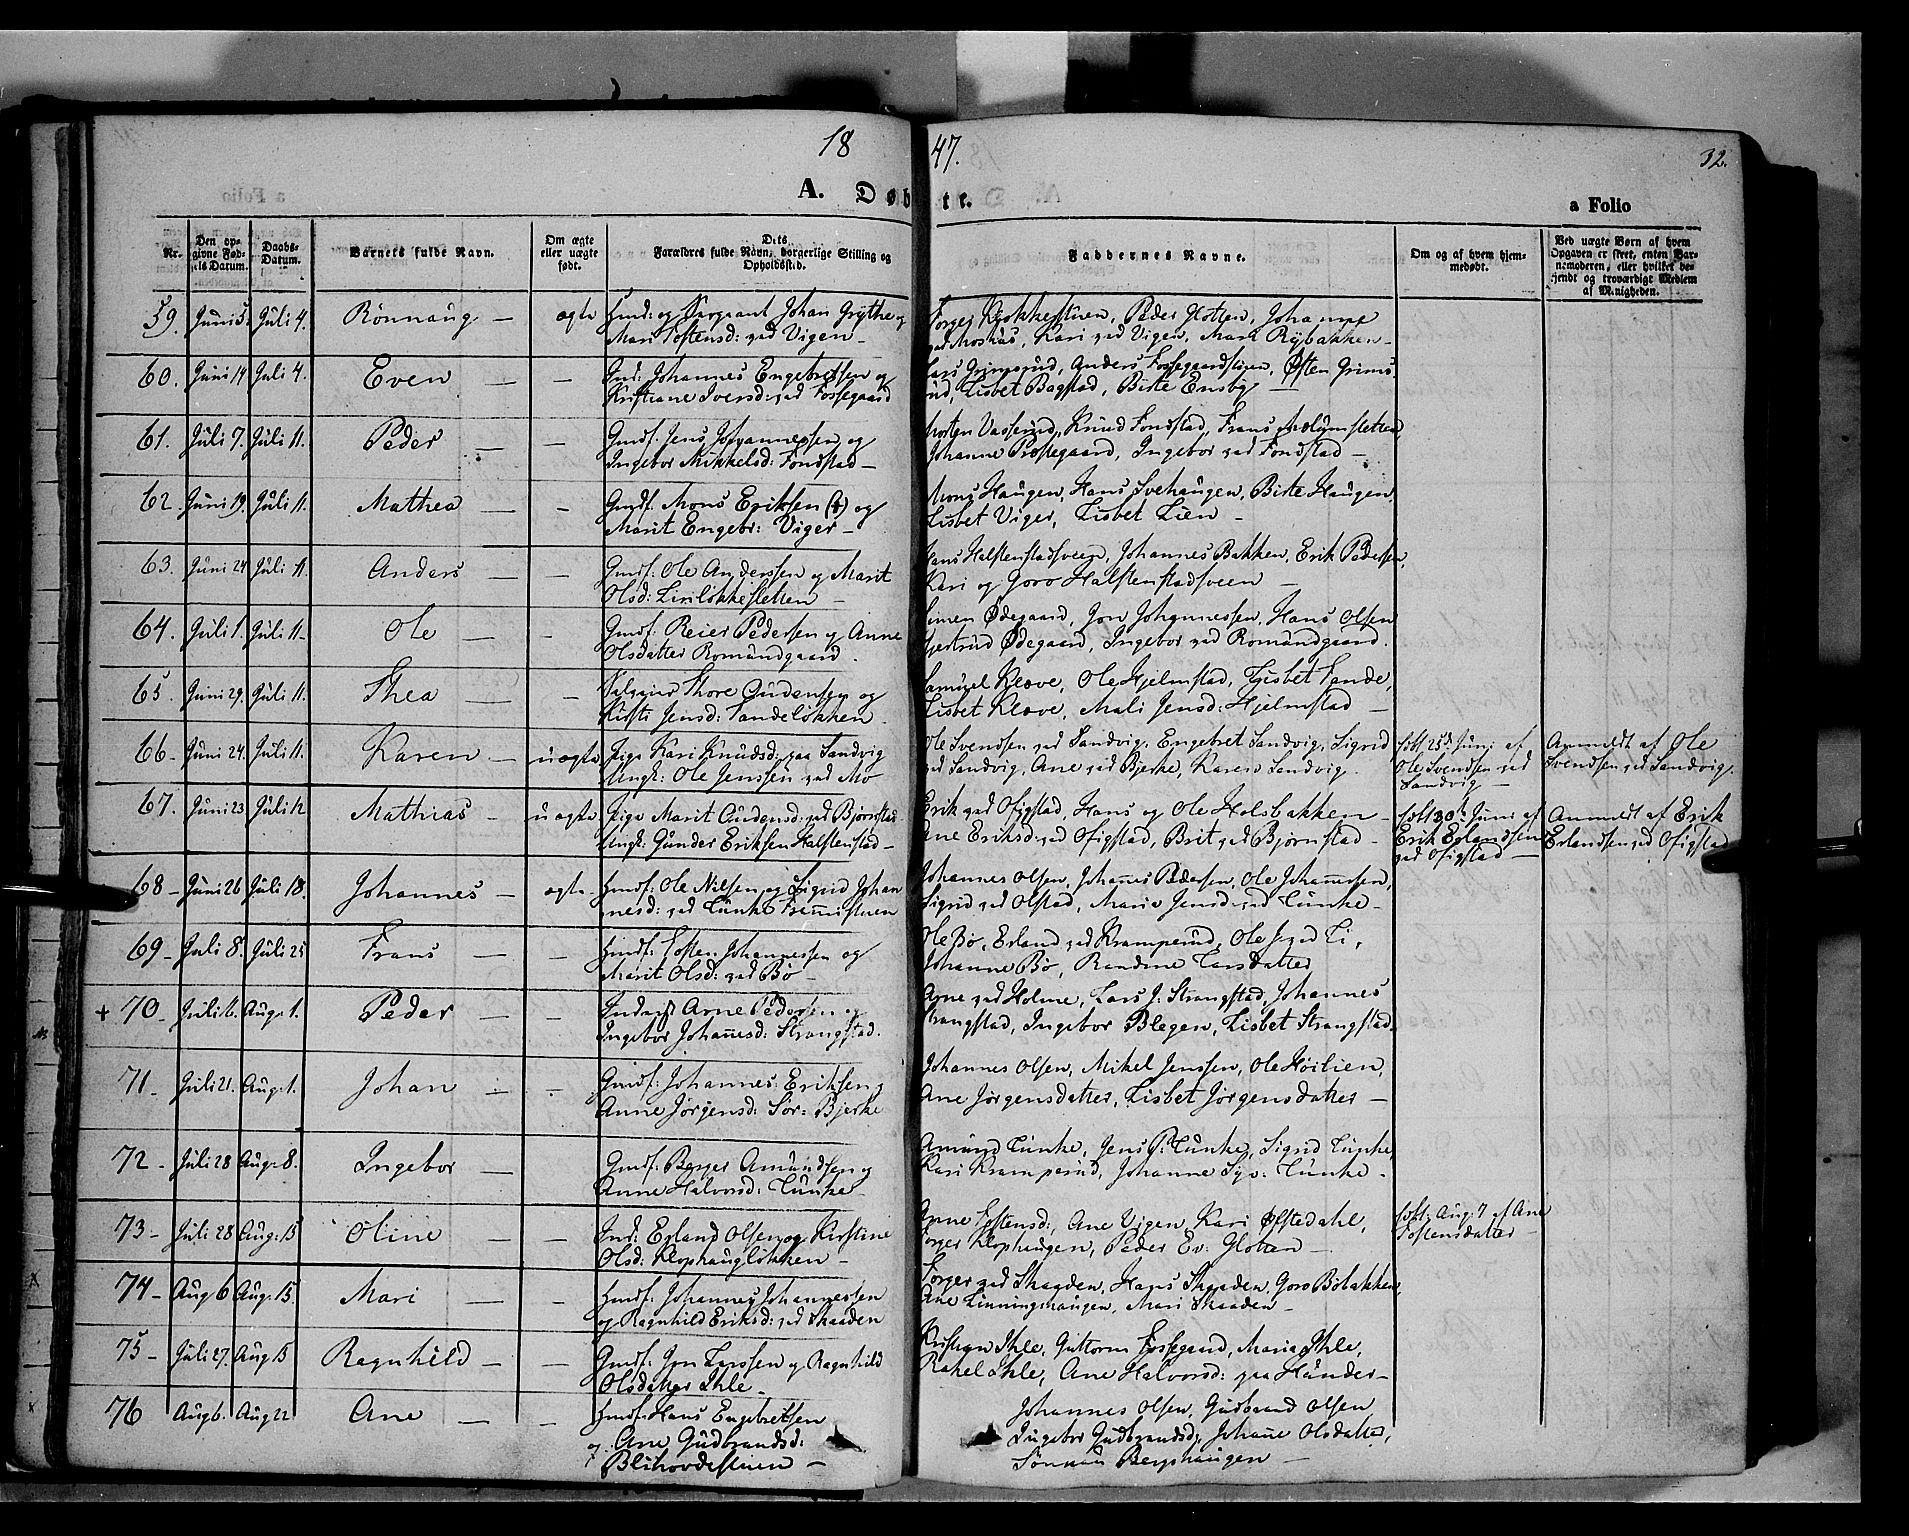 1847.
32.
A. Døbte.
a Folio
Nr.
Den opgivne Fødsels Datum.
Daabs-Datum.
Barnets fulde Navn.
Om ægte eller uægte født.
Dets Forældres fulde Navn, borgerlige Stilling og Opholdssted.
Faddernes Navne.
Om og af hvem hjemmedøbt.
Ved uægte Børn af hvem Opgaven er skeet, enten Barnemoderen, eller hvilket bekjendt og troværdigt Medlem af Menigheden.
59. Juni 5. Juli 4. Rönnaug — ægte Hmd: og Sergeant Johan Grÿthe og
Mari Tostensd: paa Vigen —
Torger Klokkestuen, Peder Glotten, Johanne
Moshus, Kari paa Vigen, Mari Rÿbakken —
60. Juni 14 Juli 4. Even — — Ind: Johannes Engebretsen og
Kristiane Iversd: paa Fossegaard
Lars Grimsrud, Anders Fossegaardstuen, Østen Grims-
rud, Lisbet Bagstad, Birte Ensby —
61. Juli 7. Juli 11. Peder — — Gmdf. Jens Johannessen og
Ingebor Mikkelsd: Fonstad —
Morten Vasrud, Knud Fonstad, Frans
Johanne Prestegaard, Ingebor paa Fonstad —
62. Juni 19. Juli 11. Mathea — — Gmdf. Mons Eriksen (t) og
Marit Engebr: Viger —
Mons Haugen, Hans Svehaugen, Birte Haugen,
Lisbet Viger, Lisbet Lien —
63. Juni 24 Juli 11. Anders — — Gmdf: Ole Anderssen og Marit
Olsd: Linløkkesletten —
Hans Halstenstadsveen, Johannes Bakken, Erik Pedersen,
Kari og Goro Halstenstadsveen —
64. Juli 1. Juli 11. Ole — — Gmdf. Reier Pedersen og Anne
Olsdatter Romundgaard.
Simen Ødegaard, Jon Johannessen, Hans Olsen
Gjertrud Ødegaard, Ingebor paa Romundgaard.
65. Juni 29. Juli 11. Thea — — Thore Audensen og
Kirsti Jensd: Sandeløkken.
Samuel Kleve, Ole Hjelmstad, Lisbet Sande,
Lisbet Kleve, Mali Jensd: Hjelmstad —
66. Juni 24. Juli 11. Karen — uægte Pige Kari Knudsd: paa Sandvig
Ungk: Ole Jenssen paa Mo
Ole Svendsen paa Sandvig, Engebret Sandvig, Sigrid
paa Sandvig, Ane paa Bjerke, Karen Sandvig.
Døbt 25d Juni af
Ole Svendsen paa
Sandvig —
Anmeldt af Ole
Svendsen paa Sandvig.
67. Juni 23 Juli 12 Mathias — uægte Pige Marit Audensd: paa Bjørnstad
Ungk: Gunder Eriksen Halstenstad —
Erik paa Ofigstad, Hans og Ole Holsbakken —
Ane Eriksd: paa Ofigstad, Brit paa Bjørnstad —
Døbt 30d Juni af
Erik Erlandsen
paa Ofigstad —
Anmeldt af Erik
Erlandsen paa Ofigstad
68 — Juni 26 Juli 18. Johannes — ægte. Hmdf: Ole Nilsen og Sigrid Johan-
nesd: paa Lunke Fremstuen
Johannes Olsen, Johañes Pedersen, Ole Johañesen,
Sigrid paa Olstad, Marie Jensd: paa Lunke —
69 — Juli 8. Juli 25 Frans — — Hmdf: Tosten Johannessen og
Marit Olsd: paa Bø —
Ole Bø, Erland paa Kramperud, Ole J: paa Li,
Johanne Bø, Randine Larsdatter
+ 70 — Juli 11. Aug: 1. Peder — — Arne Pedersen og
Ingebor Johañesd: Strangstad.
Arne paa Holme, Lars J: Strangstad, Johannes
Strangstad, Ingebor Blegen, Lisbet Strangstad.
71 — Juli 21. Aug: 1. Johan — — Gmdf: Johannes Eriksen og
Anne Jørgensd: Sør: Bjerke
Johannes Olsen, Mikel Jenssen, Ole Høilien,
Ane Jørgensdatter, Lisbet Jørgensdatter —
72 — Juli 28 Aug: 8. Ingebor — Gmdf: Berger Amundsen og
Anne Halvorsd: Lunke —
Amund Lunke, Jens P: Lunke, Sigrid Lunke,
Kari Kramperud, Johanne Syv: Lunke —
73 — Juli 28 Aug: 15 Oline — — Ind: Erland Olsen og Kirstine
Olsd: Klophaugløkken —
Anne Tostensd:, Ane Vigen, Kari Øfstedahl,
Torger Klophaugen, Peder Ev: Glotten —
Døbt Aug: 7 af Ane
Tostensdatter —
74 — Aug 6 Aug: 15. Mari — — Hmdf: Johannes Johannessen
og Ragnhild Eriksd: paa Skaaden
Torger paa Skaaden, Hans Skaaden, Goro Bøbakken,
Ane Linningshaugen, Mari Skaaden —
75 — Juli 27. Aug 15 Ragnhild — — Gmdf: Jon Larssen og Ragnhild
Olsdatter Ihle —
Kristian Ihle, Guttorm Fossegaard, Maria Ihle,
Rakel Ihle, Ane Halvorsd: paa Hunder —
76 Aug 6. Aug 22 Ane — — Hmdf: Hans Engebretsen
og Ane Gudbrandsd:
Blihovdestuen —
Johannes Olsen, Gudbrand Olsen
Ingebor Gudbrandsd:, Johañe Olsdatter,
Berghaugen —